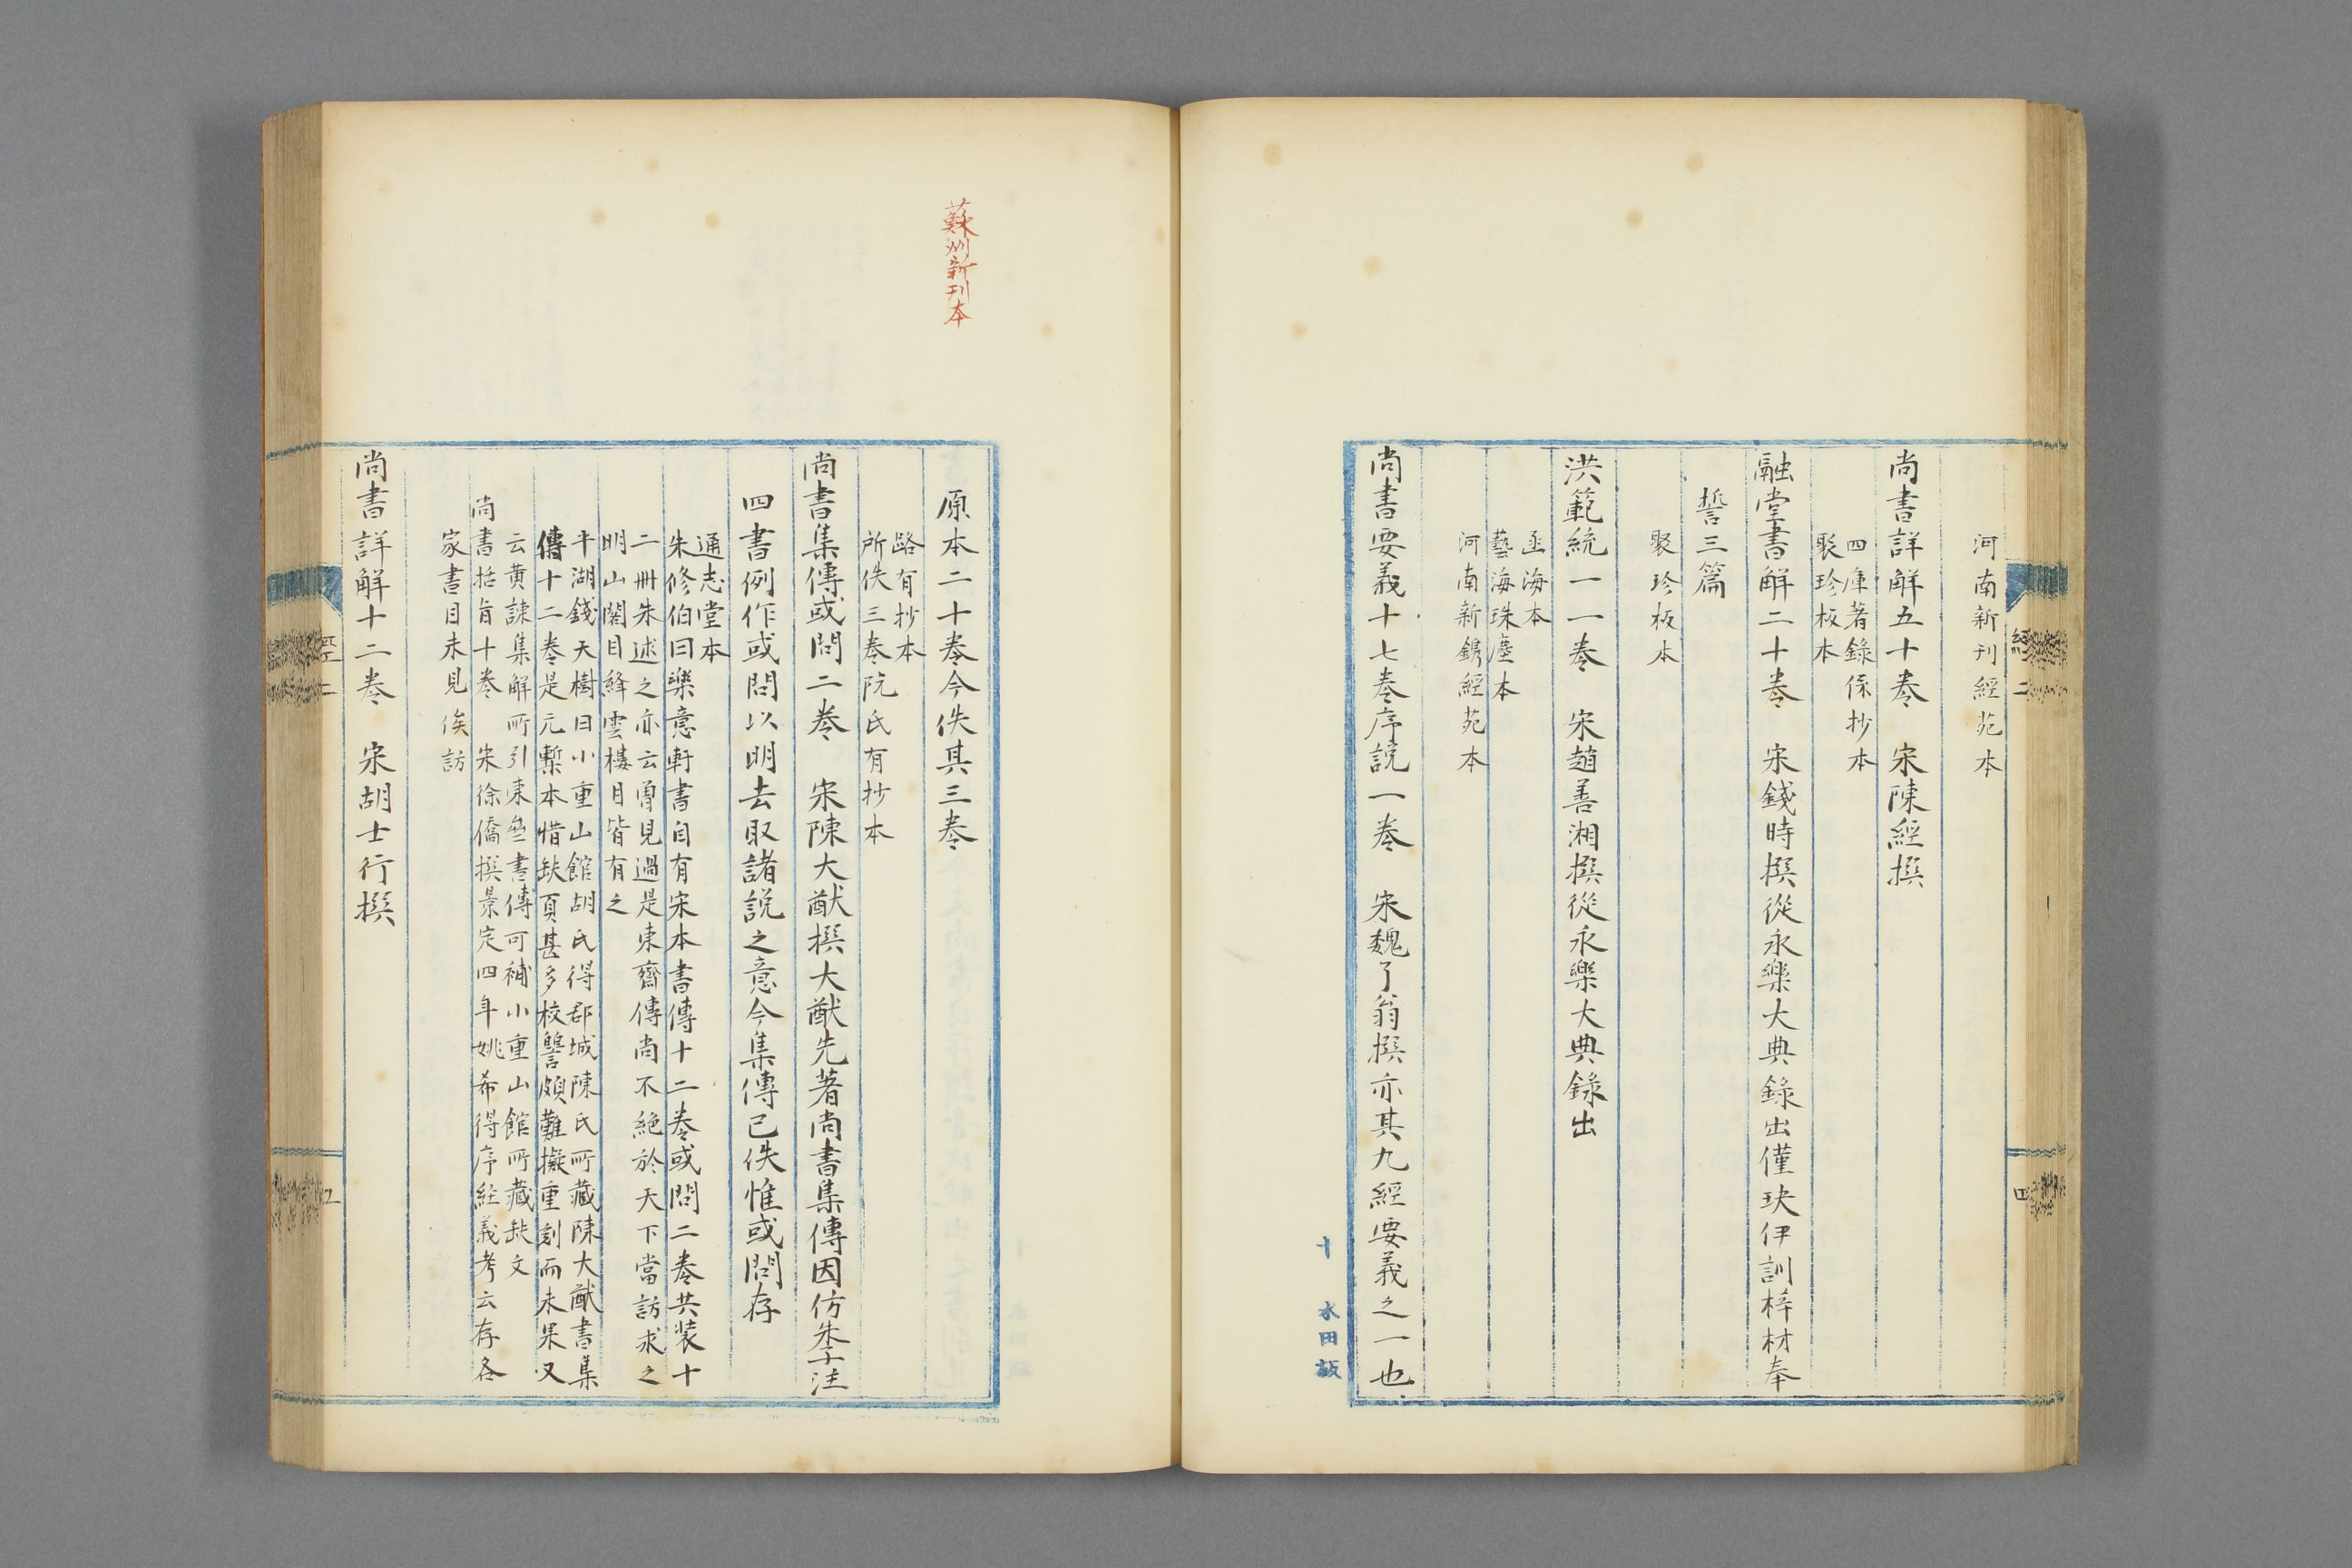 河南新刊經苑本
尚書詳解五十卷　宋陳經撰
四庫著錄係抄本
聚珍板本
融堂書解二十卷　宋錢時撰從永樂大典錄出僅玦伊訓梓材奉
誓三篇
聚珍板本
洪範統一一卷　宋趙善湘撰從永樂大典錄出
函海本
藝海珠塵本
河南新鐫經苑本
尚書要義十七卷序說一卷　宋魏了翁撰亦其九經要義之一也
經二
四
十
水田版
蘇州新刊本
原本二十卷今佚其三卷
路有抄本
所佚三卷阮氏有抄本
尚書集傳或問二卷　宋陳大猷撰大猷先著尚書集傳因仿朱子注
四書例作或問以明去取諸説之意今集傳已佚惟或問存
通志堂本
朱修伯曰樂意軒書目有宋本書傳十二卷或問二卷共裝十
二冊朱述之亦云曽見過是東齋傳尚不絶於天下當訪求之
明山閣目絳雲樓目皆有之
平湖錢天樹曰小重山館胡氏得郡城陳氏所藏陳大猷書集
傳十二卷是元槧本惜缺頁甚多校讐頗難擬重刻而未果又
云黄諫集解所引東齋書傳可補小重山館所藏缺文
尚書括旨十卷　宋徐僑撰景定四年姚希得序経義考云存各
家書目未見俟訪
尚書詳解十二卷　宋胡士行撰
經二
五